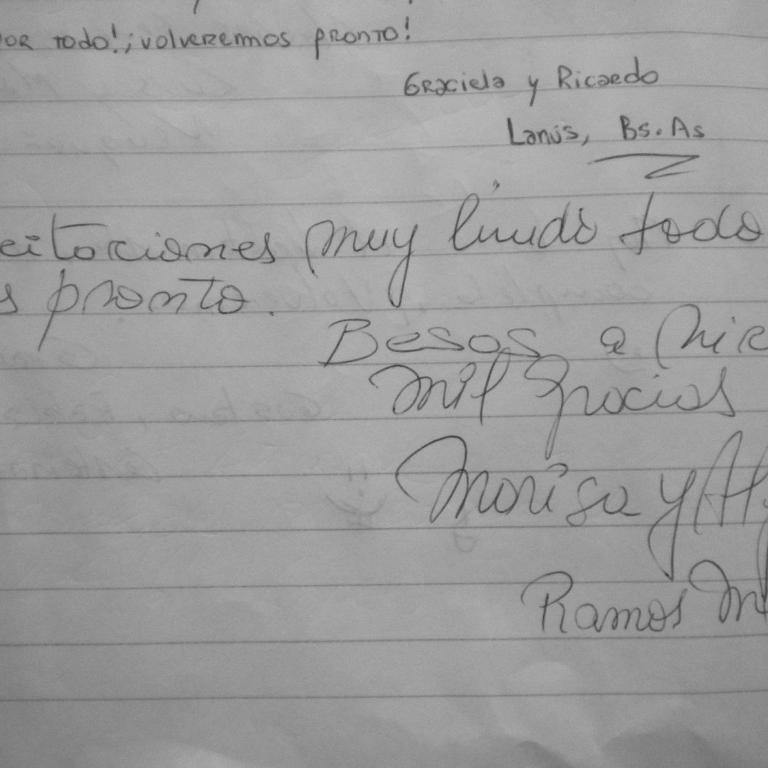 por todo! ¡volveremos pronto!
Graciela y Ricardo
Lanús, Bs. As
citaciones muy lindo todo
s pronto.
Besos a
mil gracias
Marisa y
Ramos